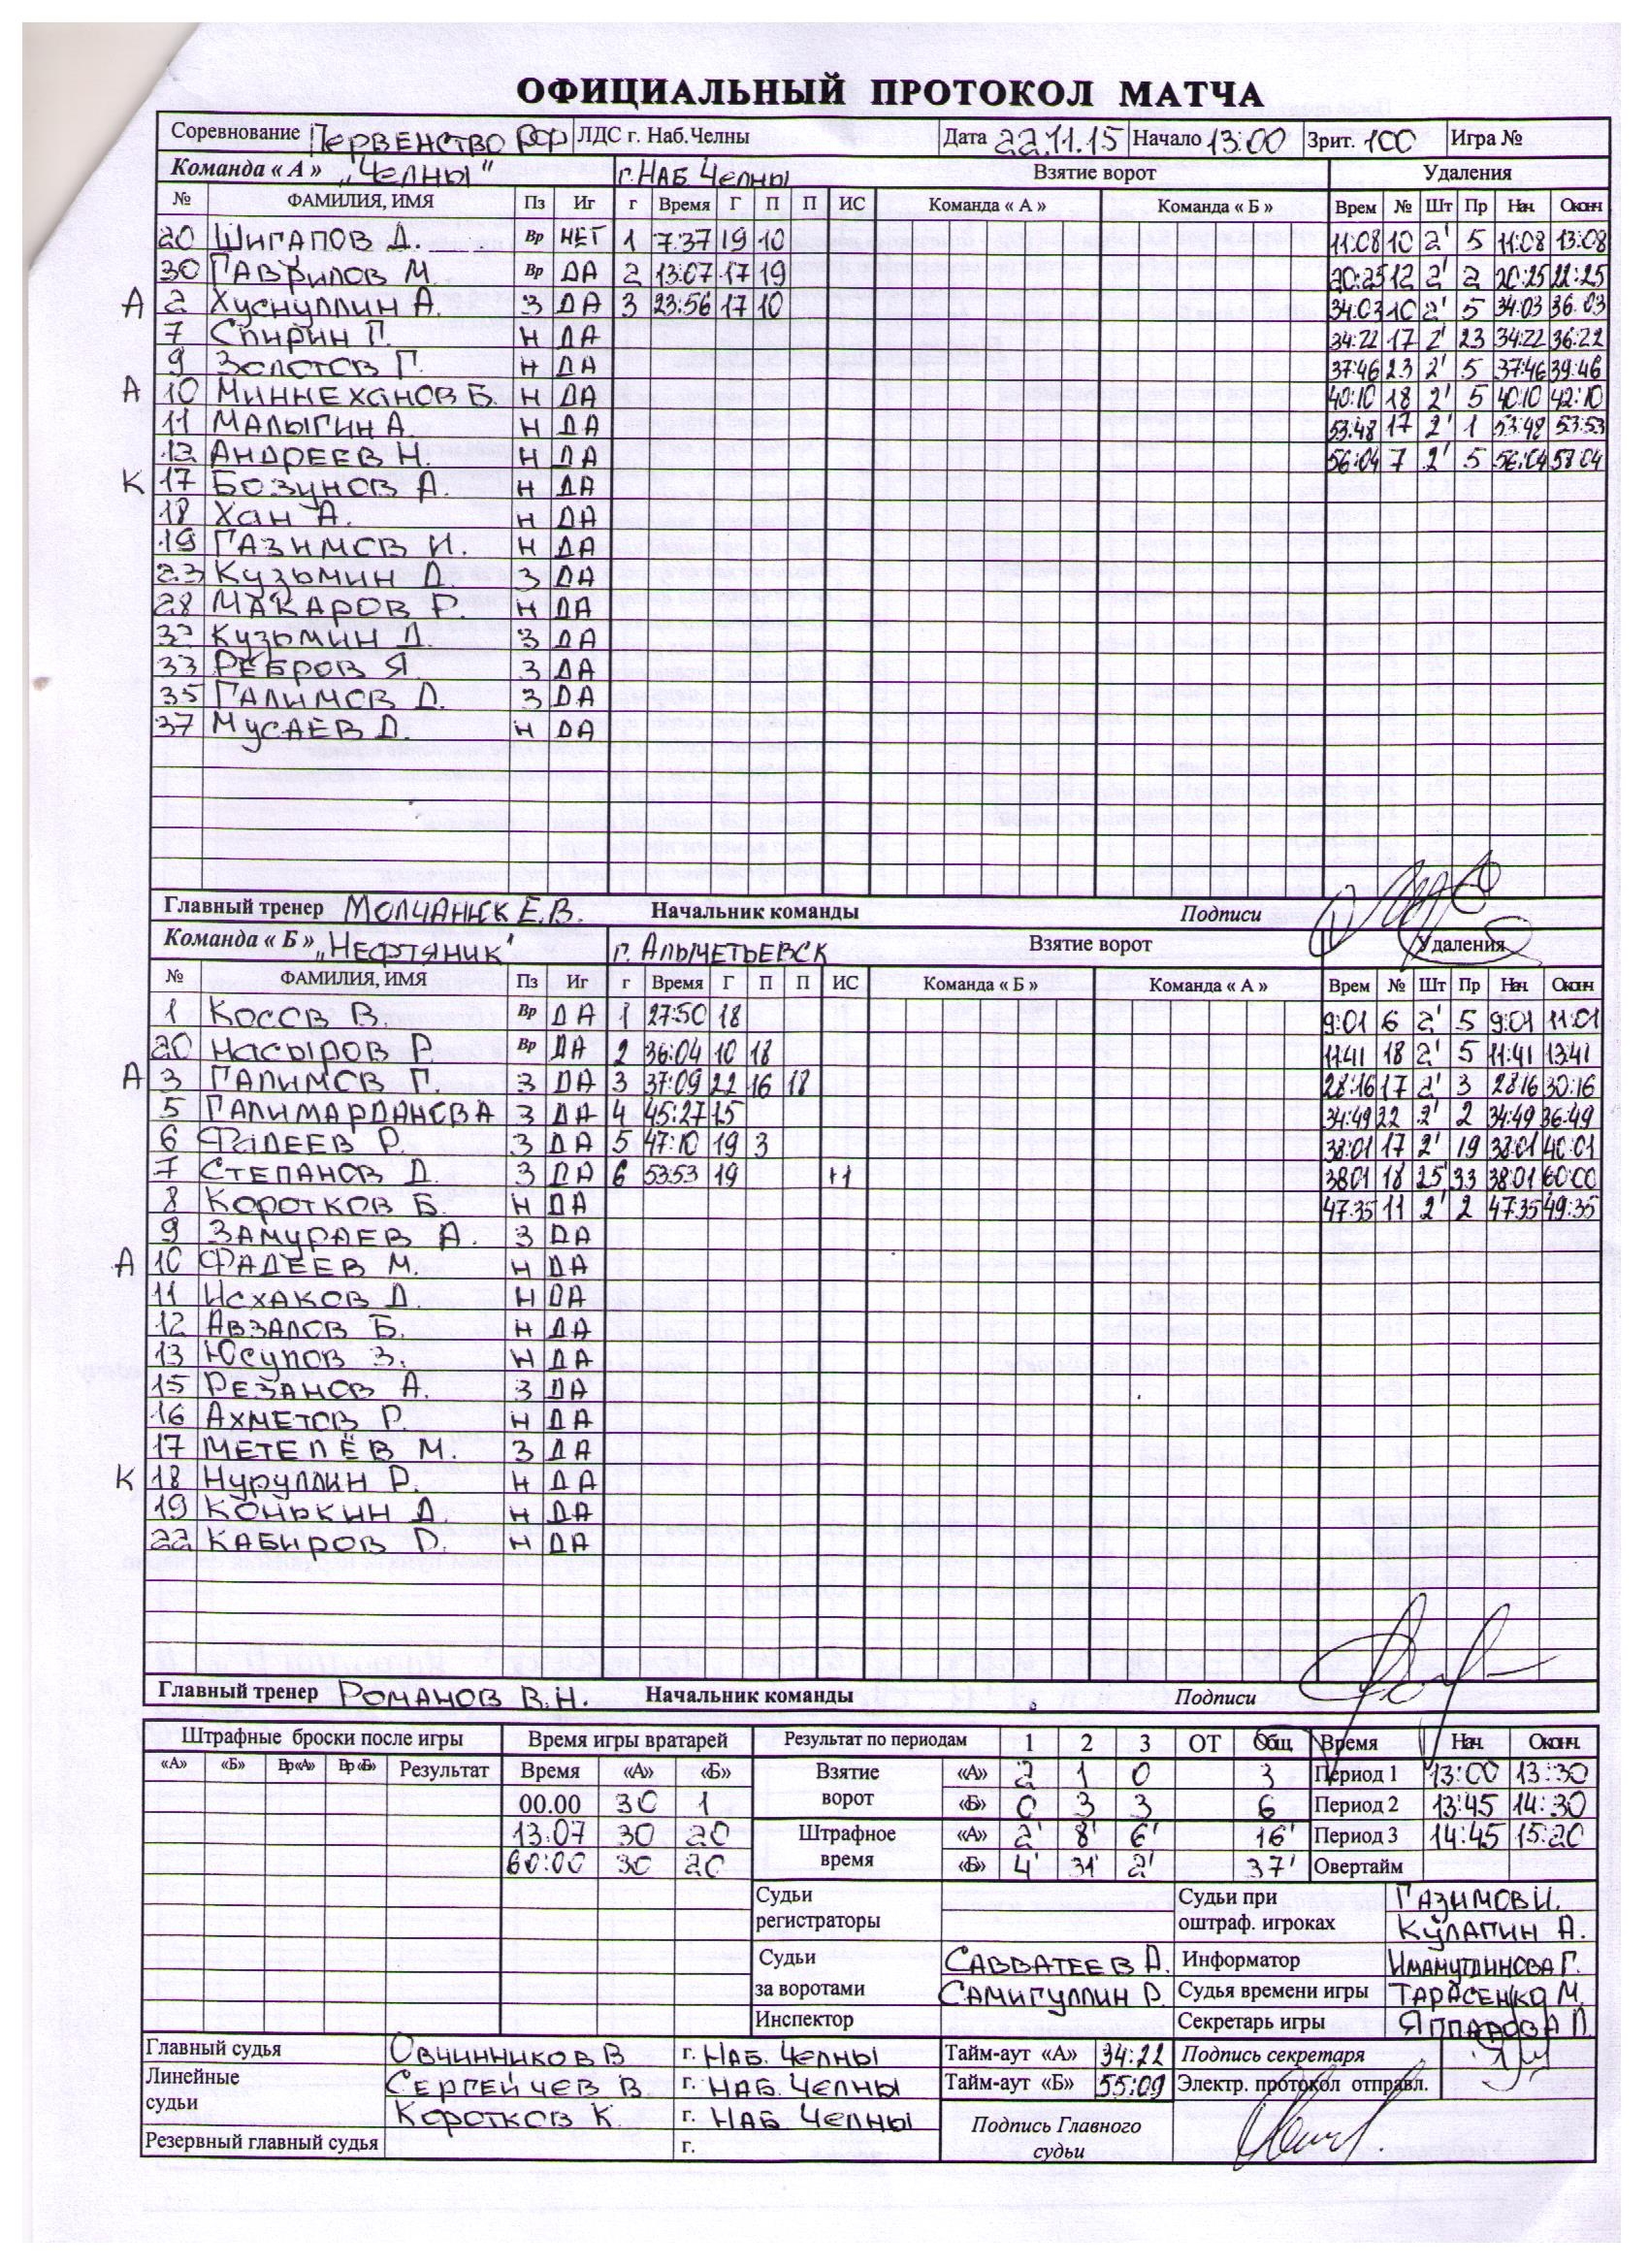 ОФИЦИАЛЬНЫЙ ПРОТОКОЛ МАТЧА
Соревнование Первенство РФ ЛДС г. Наб.Челны Дата 22.11.15 Начало 13:00 Зрит. 100 Игра №
Команда « А » „Челны" г.Наб Челны Взятие ворот Удаления
№ ФАМИЛИЯ, ИМЯ Пз Иг г Время Г П П ИС Команда « А » Команда « Б » Врем № Шт Пр Нач. Оконч
20 Шигапов Д. Вр НЕТ 1 7:37 19 10 11:08 10 2' 5 11:08 13:08
30 Гаврилов М. Вр ДА 2 13:07 17 19 20:25 12 2' 2 20:25 22:25
А 2 Хуснуллин А. З ДА 3 23:56 17 10 34:03 10 2' 5 34:03 36:03
7 Спирин Г. Н ДА 34:22 17 2' 23 34:22 36:22
9 Золотов Г. Н ДА 37:46 23 2' 5 37:46 39:46
А 10 Миннеханов Б. Н ДА 40:10 18 2' 5 40:10 42:10
11 Малыгин А. Н ДА 53:48 17 2' 1 53:48 53:53
12 Андреев Н. Н ДА 56:04 7 2' 5 56:04 58:04
К 17 Бозунов А. Н ДА
18 Хан А. Н ДА
19 Газимов И. Н ДА
23 Кузьмин Д. З ДА
28 Макаров Р. Н ДА
32 Кузьмин Д. З ДА
33 Ребров Я. З ДА
35 Галимов Д. З ДА
37 Мусаев Д. Н ДА
Главный тренер Е.В. Начальник команды Подписи
Команда « Б » „Нефтяник" г. Альметьевск Взятие ворот Удаления
№ ФАМИЛИЯ, ИМЯ Пз Иг г Время Г П П ИС Команда « Б » Команда « А » Врем № Шт Пр Нач. Оконч
1 Косов В. Вр ДА 1 27:50 18 9:01 6 2' 5 9:01 11:01
20 Насыров Р. Вр ДА 2 36:04 10 18 11:41 18 2' 5 11:41 13:41
А 3 Галимов Г. З ДА 3 37:09 22 16 18 28:16 17 2' 3 28:16 30:16
5 Галимарданов А З ДА 4 45:27 15 34:49 22 2' 2 34:49 36:49
6 Фадеев Р. З ДА 5 47:10 19 3 38:01 17 2' 19 38:01 40:01
7 Степанов Д. З ДА 6 53:53 19 +1 38:01 18 25' 33 38:01 60:00
8 Коротков Б. Н ДА 47:35 11 2' 2 47:35 49:35
9 Замураев А. З ДА
А 10 Фадеев М. Н ДА
11 Исхаков Д. Н ДА
12 Авзалов Б. Н ДА
13 Юсупов З. Н ДА
15 Резанов А. З ДА
16 Ахметов Р. Н ДА
17 Метелёв М. З ДА
К 18 Нуруллин Р. Н ДА
19 Конькин Д. Н ДА
22 Кабиров D. Н ДА
Главный тренер Романов В.Н. Начальник команды Подписи
Штрафные броски после игры Время игры вратарей Результат по периодам 1 2 3 ОТ Общ Время Нач. Оконч.
«А» «Б» Вр«А» Вр«Б» Результат Время «А» «Б» Взятие ворот «А» 2 1 0 3 Период 1 13:00 13:30
00.00 30 1 «Б» 0 3 3 6 Период 2 13:45 14:30
13:07 30 20 Штрафное время «А» 2' 8' 6' 16' Период 3 14:45 15:20
60:00 30 20 «Б» 4' 31' 2' 37' Овертайм
Судьи регистраторы Судьи при оштраф. игроках Газимов И.
Кулапин А.
Судьи за воротами Савватеев А. Информатор Имамутдинова Г.
Самигуллин Р. Судья времени игры Тарасенко М.
Инспектор Секретарь игры Яппарова Л.
Главный судья Овчинников В г. Наб. Челны Тайм-аут «А» 34:22 Подпись секретаря
Линейные судьи Сергейчев В. г. Наб. Челны Тайм-аут «Б» 55:09 Электр. протокол отправл.
Коротков К. г. Наб Челны Подпись Главного судьи
Резервный главный судья г.